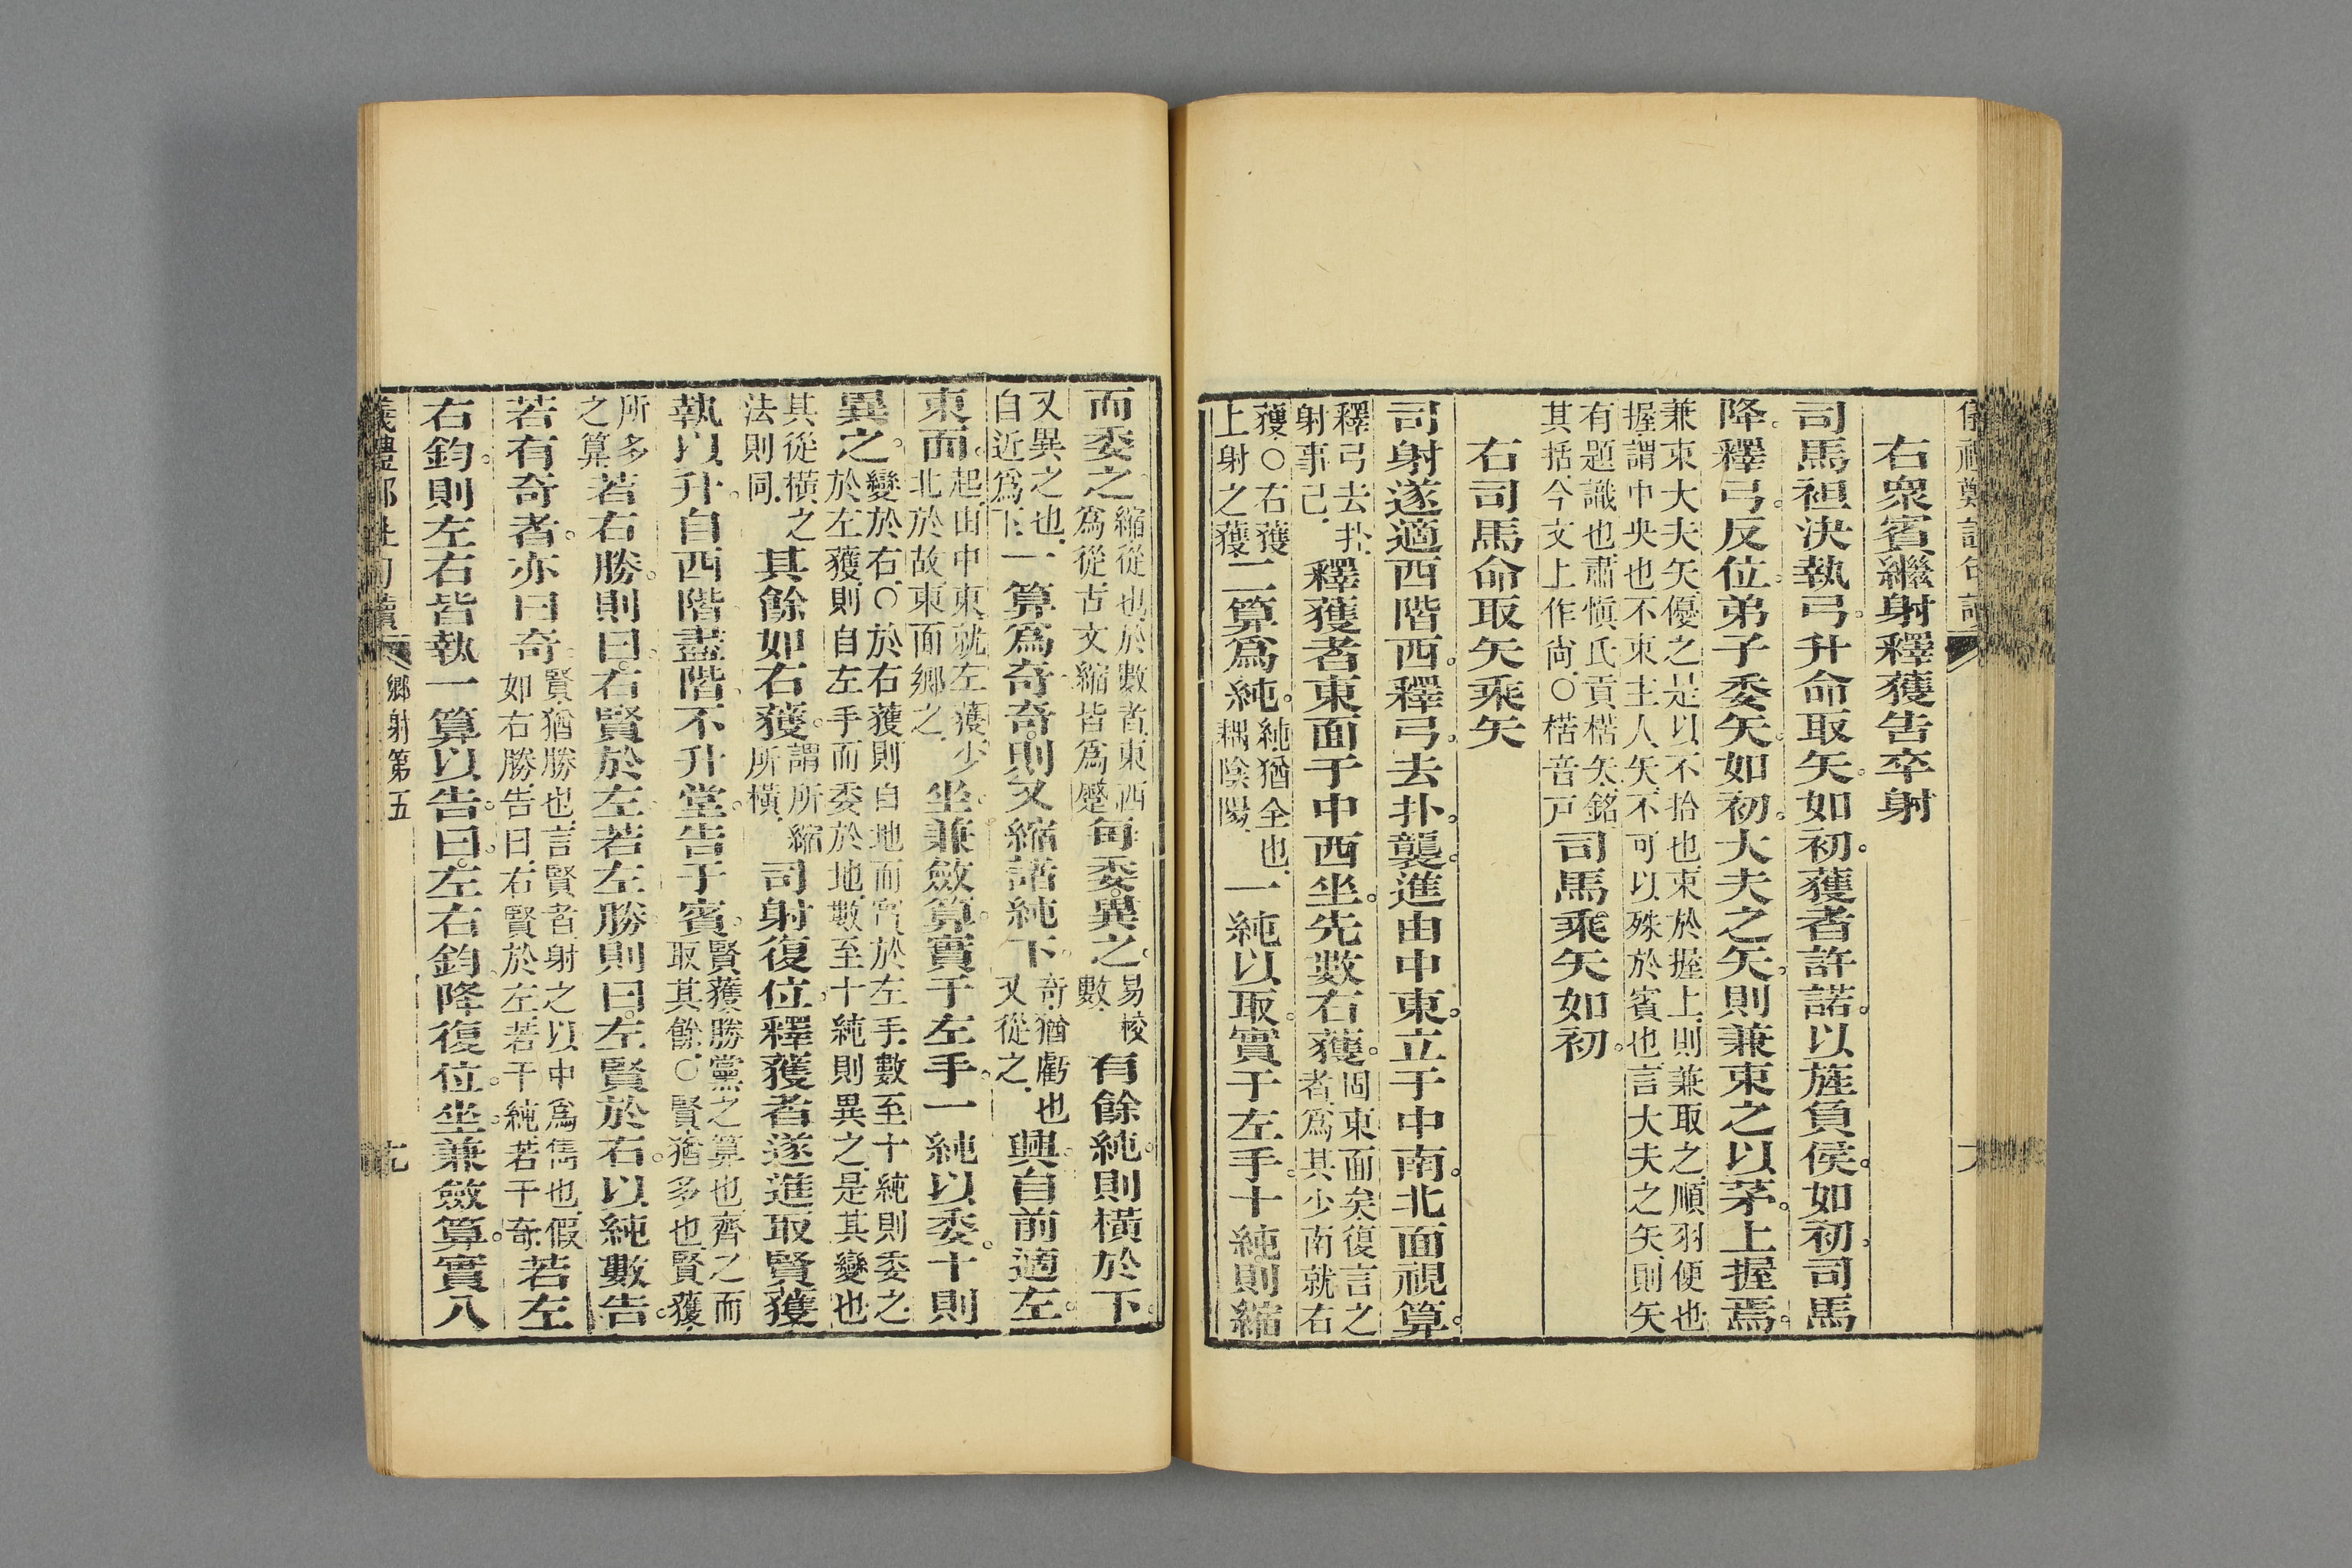 右眾賓繼射釋獲告卒射
司馬袒決執弓。升命取矢。如初。獲者許諾。以旌負侯。如初。司馬
降。釋弓。反位。弟子委矢。如初。大夫之矢。則兼束之以茅。上握焉。
兼束大夫矢、優之、是以不拾也、束於握上、則兼取之、順羽便也、
握、謂中央也、不束主人矢、不可以殊於賓也、言大夫之矢、則矢
有題識也、肅慎氏貢楛矢、銘
其括、今文上作尚、〇楛音戶
司馬乘矢如初。
右司馬命取矢乘矢
司射遂適西階西。釋弓。去扑。襲。進由中東。立于中南。北面視算。
釋弓去扑、
射事已、
釋獲者東面于中西坐。先數右獲。
固東面矣、復言之
者、爲其少南就右
獲、〇右獲、
上射之獲、
二算爲純。
純猶全也、
耦陰陽、
一純以取。實于左手。十純則縮
而委之。
縮從也、於數者、東西
爲從、古文縮皆爲蹙、
每委異之。
易校
數、
有餘純。則橫於下。
又異之也、
自近爲下、
一算爲奇。奇則又縮諸純下。
奇猶虧也、
又從之、
興。自前適左。
東面。
起由中東、就左獲、少
北於故、東面鄉之、
坐。兼斂算。實于左手。一純以委。十則
異之。
變於右、〇於右獲、則自地而實於左手、數至十純則委之、
於左獲、則自左手而委於地、數至十純則異之、是其變也、
其從橫之
法則同、
其餘如右獲。
謂所縮
所橫、
司射復位。釋獲者遂進取賢獲。
執以升。自西階。盡階。不升堂。告于賓。
賢獲、勝黨之算也、齊之而
取其餘、〇賢猶多也、賢獲、
所多
之算、
若右勝。則曰。右賢於左。若左勝。則曰。左賢於右。以純數告。
若有奇者。亦曰奇。
賢猶勝也、言賢者、射之以中爲雋也、假
如右勝、告曰、右賢於左若干純、若干奇、
若左
右鈞。則左右皆執一算以告。曰。左右鈞。降復位。坐。兼斂算。實八
儀禮鄭注句讀 鄉射第五